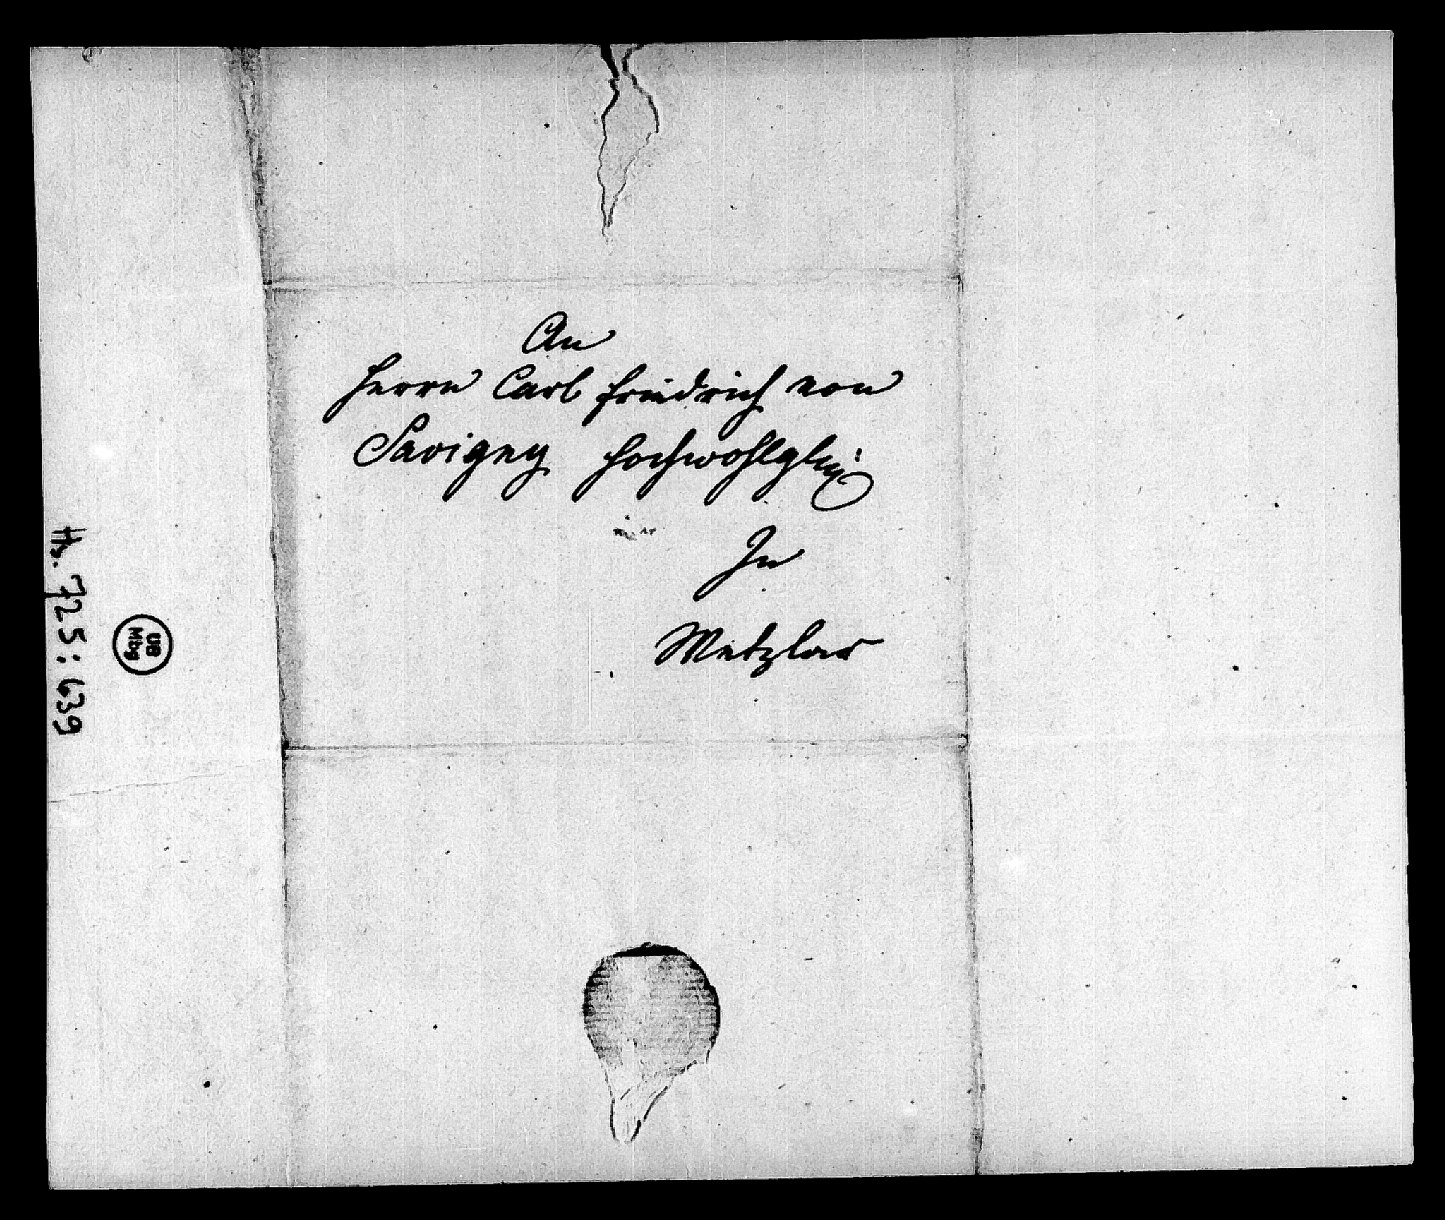 An
Herrn Carl Friedrich von
Savigny Hochwohlgb:
In
Wetzlar
Hs. 725:639
UB
Mbg